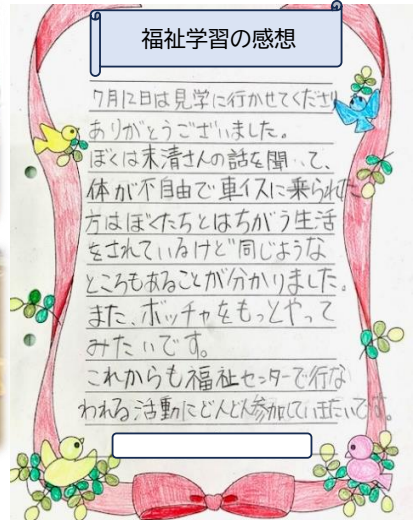 福祉学習の感想
7月12日は見学に行かせてくださり
ありがとうございました。
ぼくは末清さんの話を聞いて、
体が不自由で車イスに乗られた
方はぼくたちとはちがう生活
をされているけど同じような
ところもあることが分かりました。
また、ボッチャをもっとやって
みたいです。
これからも福祉センターで行な
われる活動にどんどん参加していきたいです。